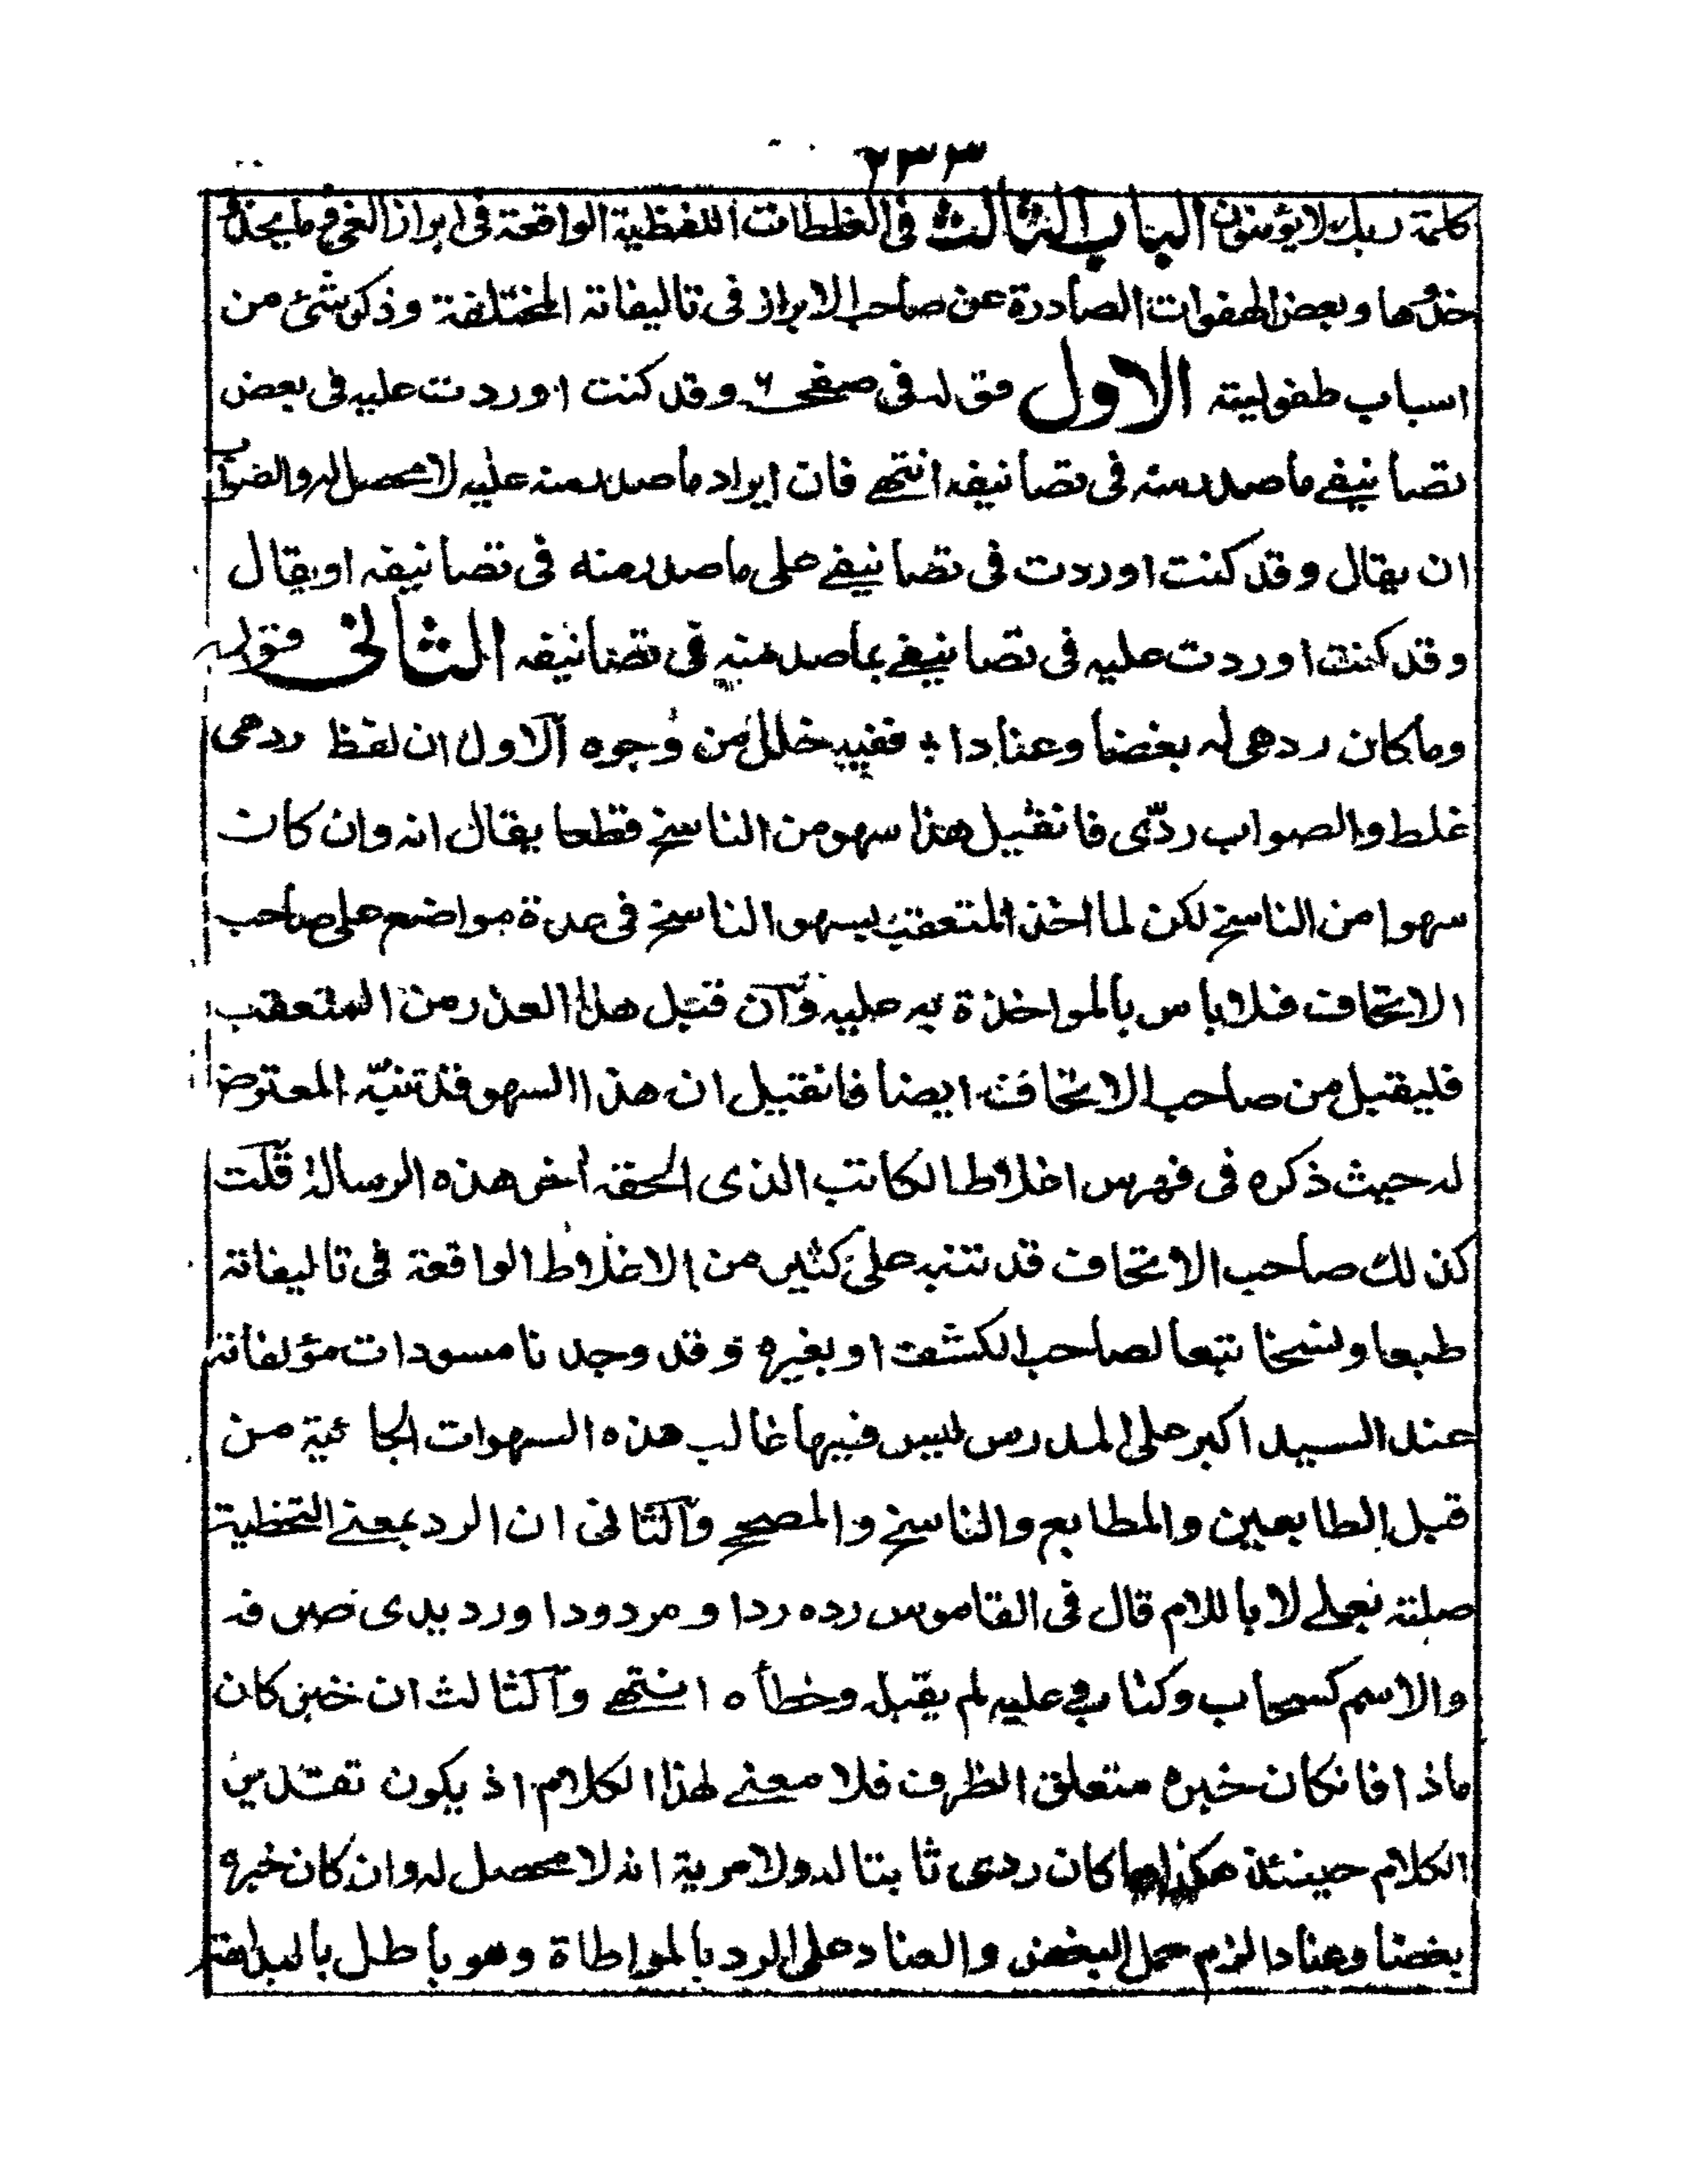 ٢٣٣
كلمة ربك لا يؤمنون الباب الثالث فى الغلطات اللفظية الواقعة فى ابراز الغى وما يحذو
حذوها وبعض الهفوات الصادرة عن صاحب الابراز فى تاليفاته المختلفة وذكر شئ من
اسباب طفوليته الاول قوله فى صفحه ٦ وقد كنت اوردت عليه فى بعض
تصانيفے ما صدر منه فى تصانيفه انتهے فان ايراد ما صدر منه عليه لا محصل له والصواب
ان يقال وقد كنت اوردت فى تصانيفے على ما صدر منه فى تصانيفه او يقال
وقد كنت اوردت عليه فى تصانيفے بما صدر منه فى تصانيفه الثانى قوله
وما كان ردهى له بغضا وعنادا ففيه خلل من وجوه الاول ان لفظ ردهى
غلط والصواب ردّى فانقيل هذا سهو من الناسخ قطعا يقال انه وان كان
سهوا من الناسخ لكن لما اخذ المتعقب بسهو الناسخ فى عدة مواضع على صاحب
الاتحاف فلا باس بالمواخذة به عليه وان قبل هذا العذر من المتعقب
فليقبل من صاحب الاتحاف ايضا فانقيل ان هذا السهو قد تنبّه المعترض
له حيث ذكره فى فهرس اغلاط الكاتب الذى الحقه أخر هذه الرسالة قلت
كذلك صاحب الاتحاف قد تنبه على كثير من الاغلاط الواقعة فى تاليفاته
طبعا ونسخا تبعا لصاحب الكشف او بغيره وقد وجدنا مسودات مؤلفاته
عند السيد اكبر على المدرس ليس فيها غالب هذه السهوات الجائية من
قبل الطابعين والمطابع والناسخ والمصحح والثانى ان الرد بمعنے التخطية
صلته بعلے لا باللام قال فى القاموس رده ردا ومردودا ورديدى صرفه
والاسم كسحاب وكتاب وعليه لم يقبله وخطأه انتهے والثالث ان خبر كان
ماذا فانكان خبره متعلق الظرف فلا معنے لهذا الكلام اذ يكون تقدير
الكلام حينئذ هكذا ما كان ردى ثابتا له ولا مرية انه لا محصل له وان كان خبره
بغضا وعنادا لزم حمل البغض والعناد على الرد بالمواطاة وهو باطل بالبداهة